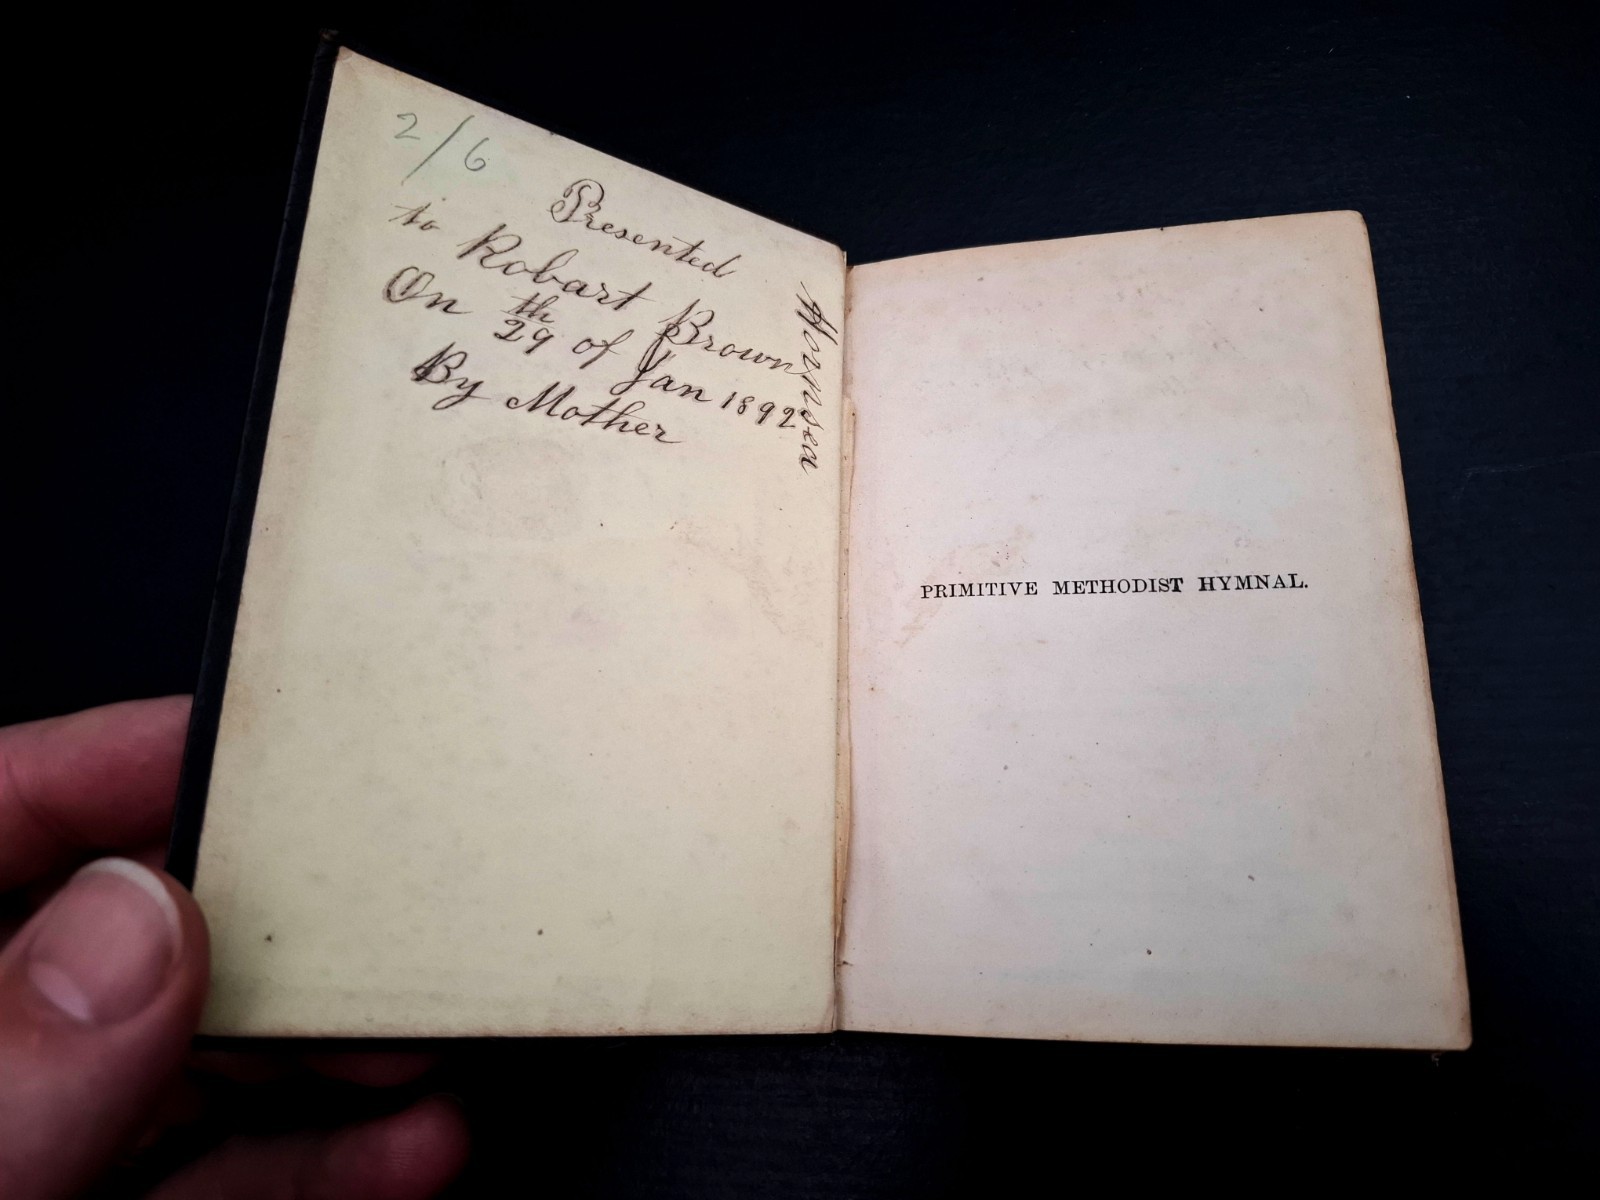 2/6
Presented
to Robart Brown
On 29th of Jan 1892
By Mother
Hornsea
PRIMITIVE METHODIST HYMNAL.